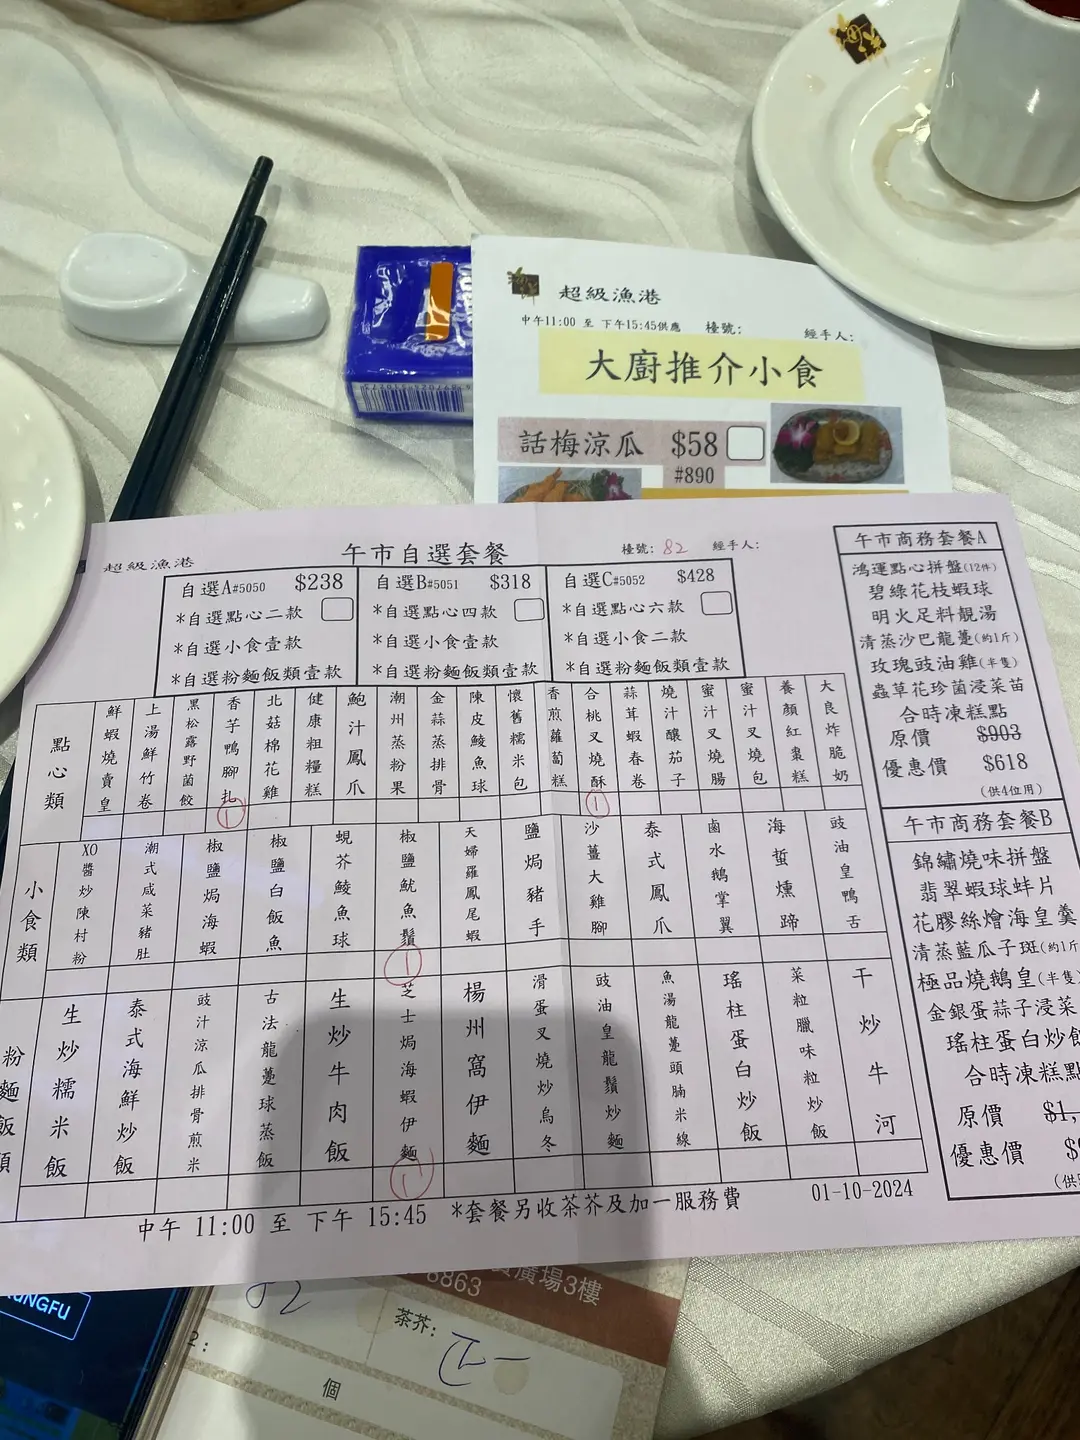 超級漁港
中午11:00 至 下午15:45供應 檯號: 經手人:
大廚推介小食
話梅涼瓜 $58
#890
超級漁港
午市自選套餐
檯號: 82 經手人:
自選A#5050 $238
*自選點心二款
*自選小食壹款
*自選粉麵飯類壹款
自選B#5051 $318
*自選點心四款
*自選小食壹款
*自選粉麵飯類壹款
自選C#5052 $428
*自選點心六款
*自選小食二款
*自選粉麵飯類壹款
點心類
鮮蝦燒賣皇
上湯鮮竹卷
黑松露野菌餃
香芋鴨腳扎
1
北菇棉花雞
健康粗糧糕
鮑汁鳳爪
潮州蒸粉果
金蒜蒸排骨
陳皮鯪魚球
懷舊糯米包
香煎蘿蔔糕
合桃叉燒酥
1
蒜茸蝦春卷
燒汁釀茄子
蜜汁叉燒腸
蜜汁叉燒包
養顏紅棗糕
大良炸脆奶
小食類
XO醬炒陳村粉
潮式咸菜豬肚
椒鹽焗海蝦
椒鹽白飯魚
蜆芥鯪魚球
椒鹽魷魚鬚
1
天婦羅鳳尾蝦
鹽焗豬手
沙薑大雞腳
泰式鳳爪
鹵水鵝掌翼
海蜇燻蹄
豉油皇鴨舌
粉麵飯類
生炒糯米飯
泰式海鮮炒飯
豉汁涼瓜排骨煎米
古法龍躉球蒸飯
生炒牛肉飯
芝士焗海蝦伊麵
1
楊州窩伊麵
滑蛋叉燒炒烏冬
豉油皇龍鬚炒麵
魚湯龍躉頭腩米線
瑤柱蛋白炒飯
菜粒臘味粒炒飯
干炒牛河
中午 11:00 至 下午 15:45 *套餐另收茶芥及加一服務費
01-10-2024
午市商務套餐A
鴻運點心拼盤(12件)
碧綠花枝蝦球
明火足料靚湯
清蒸沙巴龍躉(約1斤)
玫瑰豉油雞(半隻)
蟲草花珍菌浸菜苗
合時凍糕點
原價 $903
優惠價 $618
(供4位用)
午市商務套餐B
錦繡燒味拼盤
翡翠蝦球蚌片
花膠絲燴海皇羹
清蒸藍瓜子斑(約1斤)
極品燒鵝皇(半隻)
金銀蛋蒜子浸菜
瑤柱蛋白炒飯
合時凍糕點
原價 $1,
優惠價
(供
廣場3樓
8863
82
茶芥:
2:
個
KUNGFU